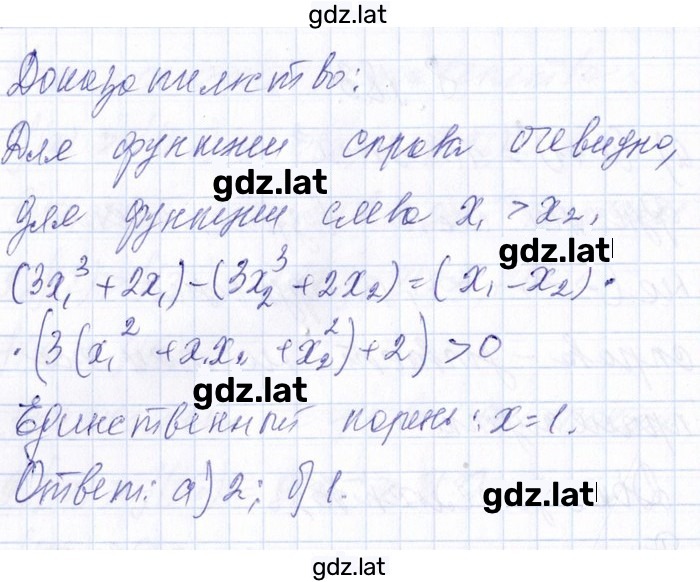 gdz.lat
Доказательство:
Для функции справа очевидно,
gdz.lat
для функции слева x₁ > x₂,
gdz.lat
(3x₁³ + 2x₁) − (3x₂³ + 2x₂) = (x₁ − x₂) ·
· (3(x₁² + x₁x₂ + x₂²) + 2) > 0
gdz.lat
Единственный корень: x = 1.
Ответ: а) 2; б) 1.
gdz.lat
gdz.lat